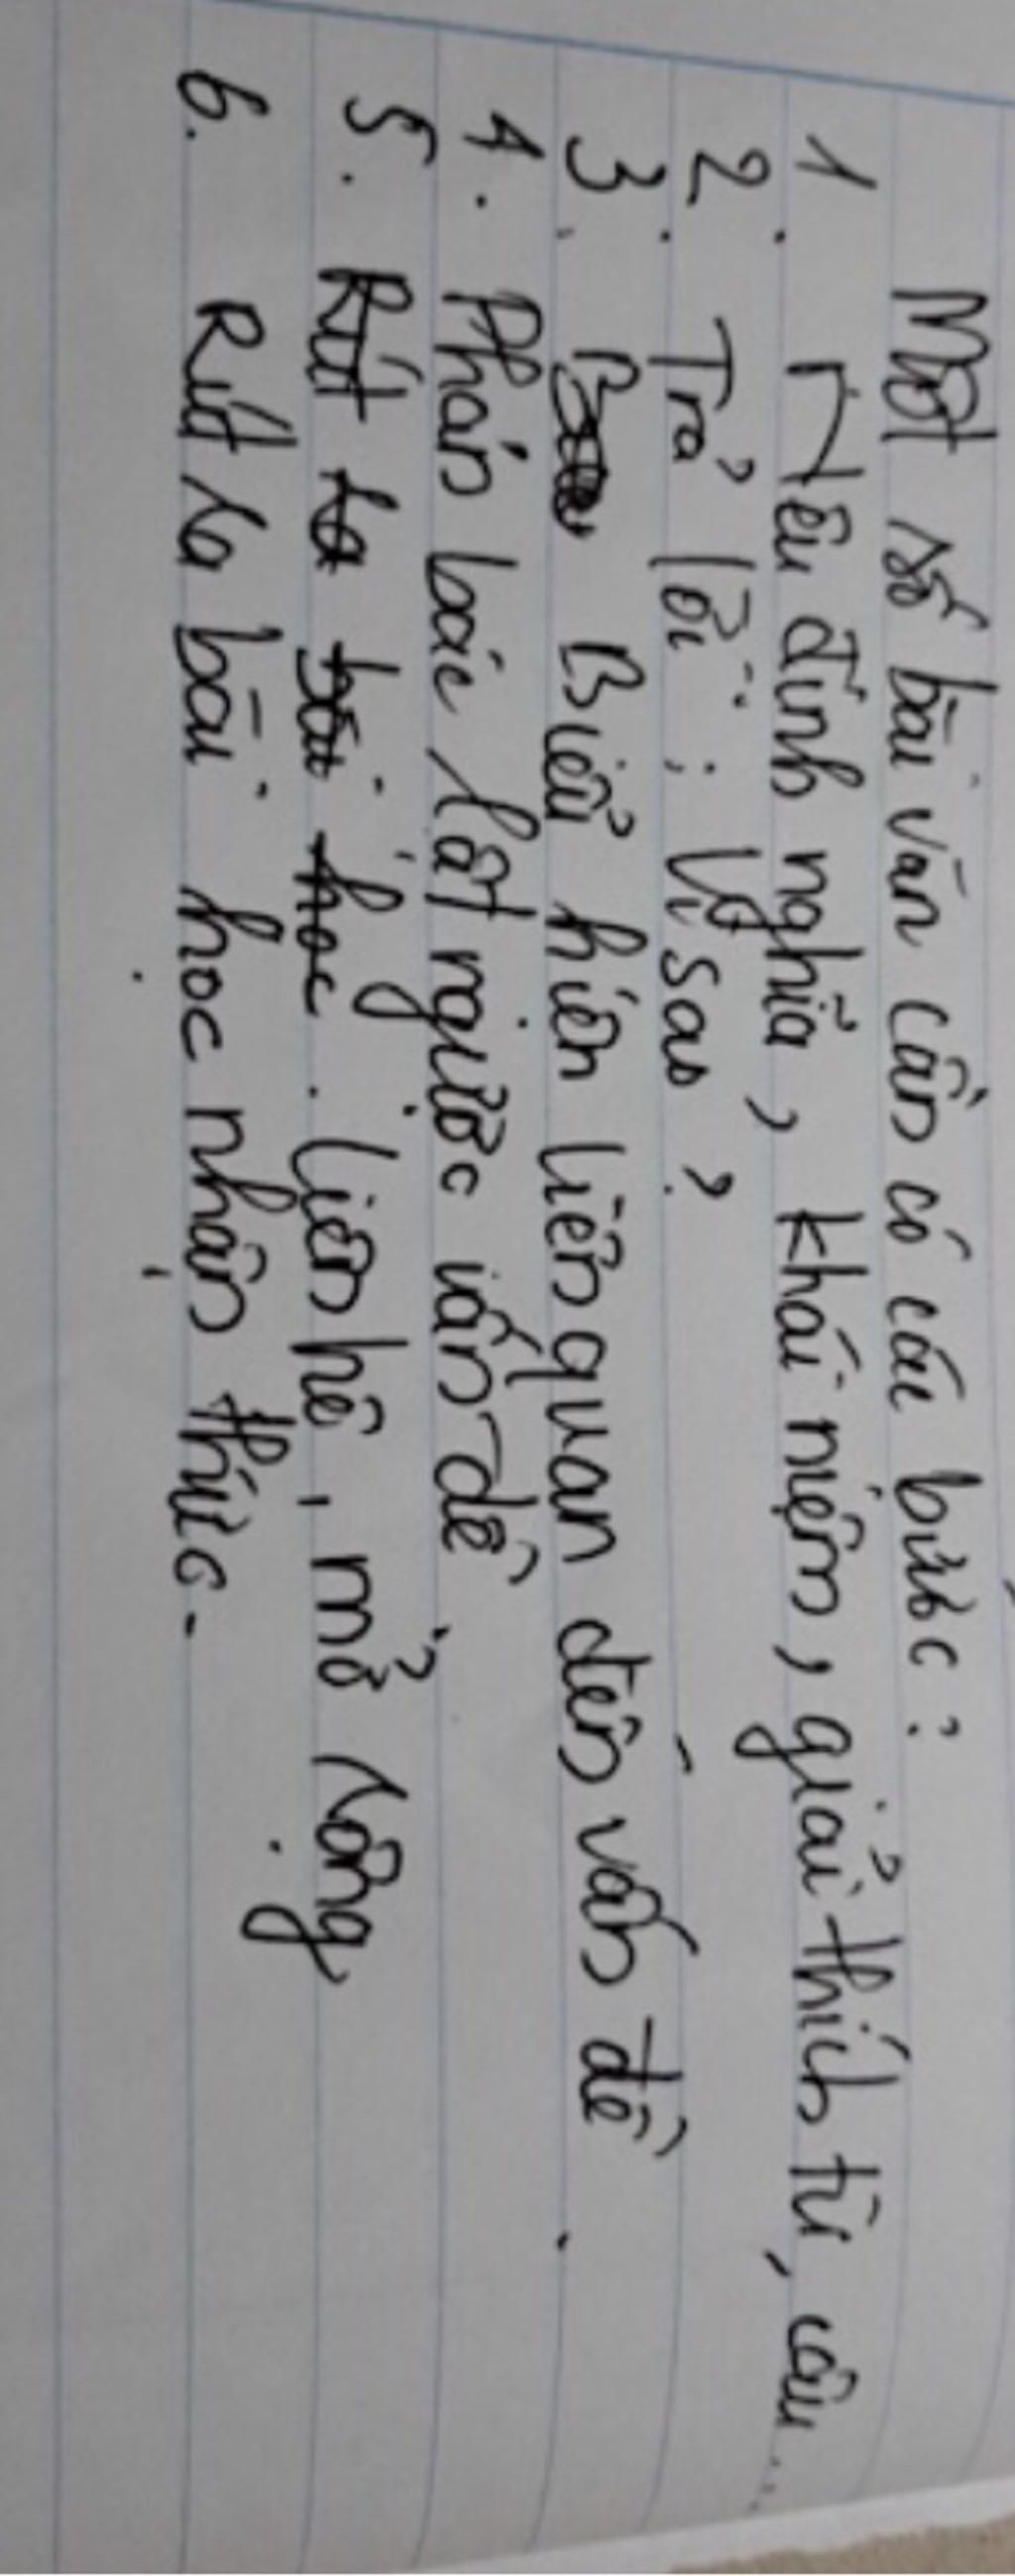 Một số bài văn cần có các bước :
1. Nêu định nghĩa, khái niệm, giải thích từ, câu...
2. Trả lời : Vì sao ?
3. Biểu hiện liên quan đến vấn đề.
4. Phản bác lật ngược vấn đề
5. Liên hệ, mở rộng
6. Rút ra bài học nhận thức.